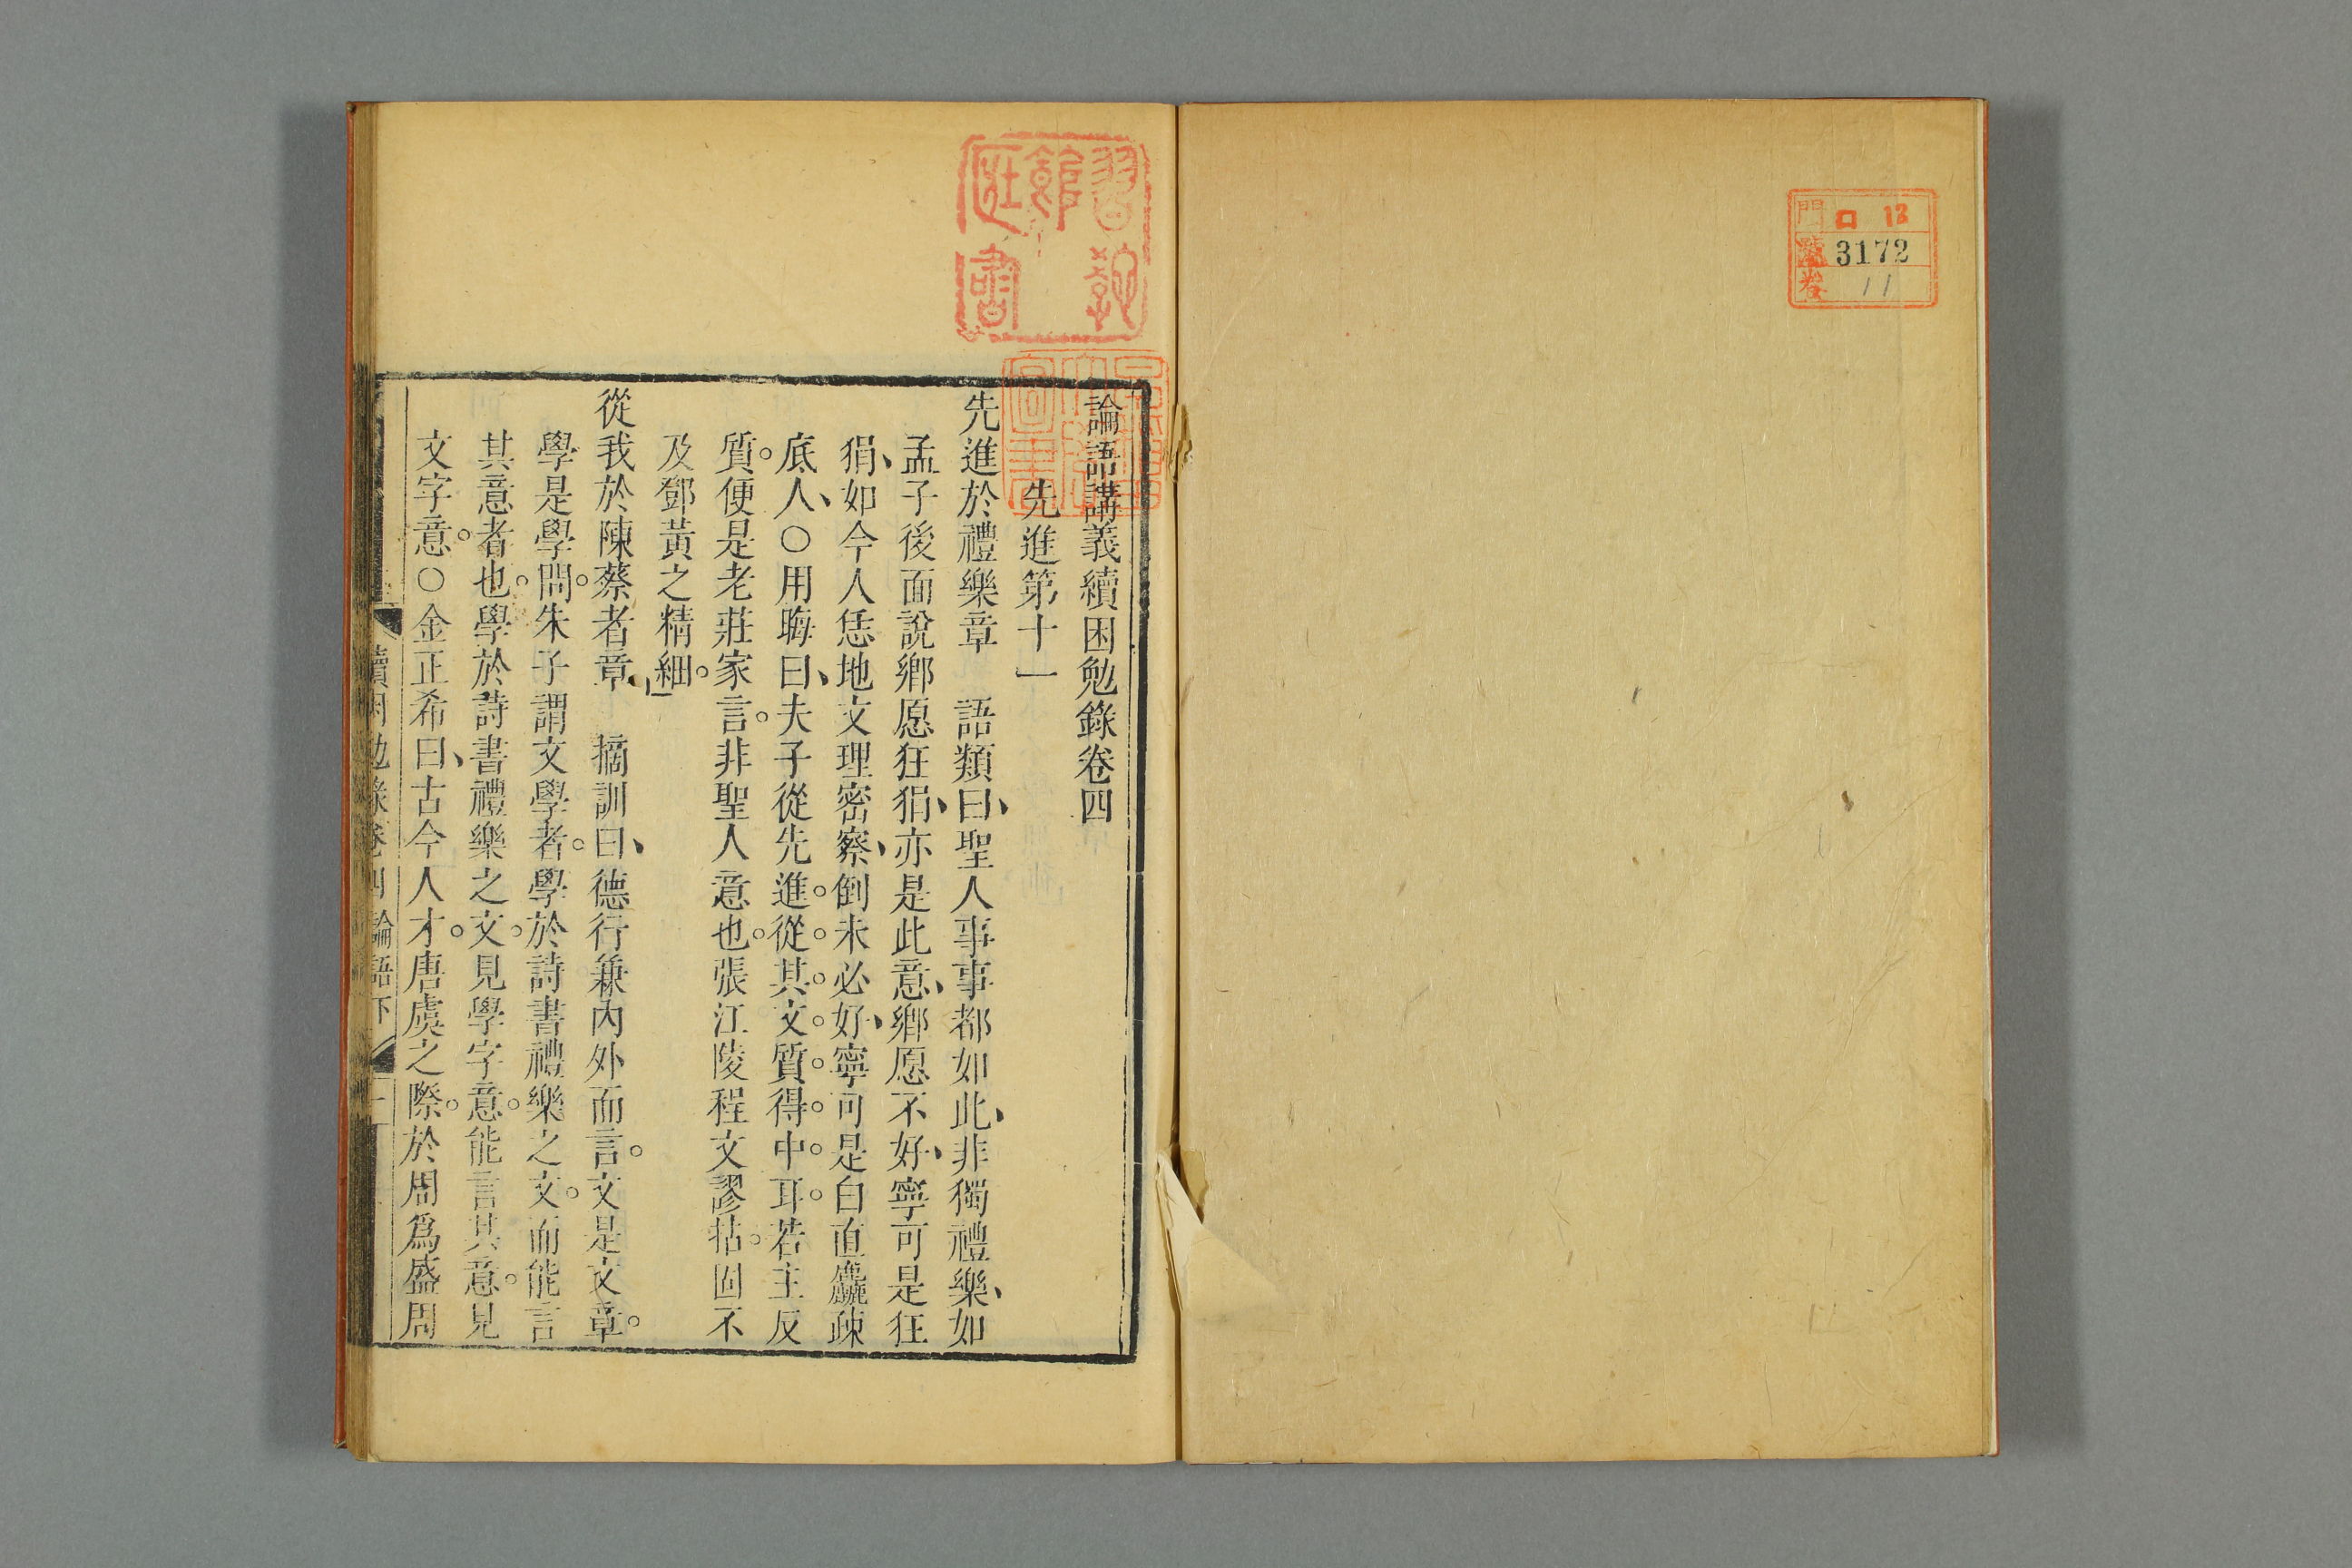 門 ロ 13
號 3172
卷 11
論語講義續困勉錄卷四
先進第十一
先進於禮樂章　語類曰、聖人事事都如此、非獨禮樂、如
孟子後面說鄉愿狂狷、亦是此意、鄉愿不好、寧可是狂
狷、如今人恁地文理密察、倒未必好、寧可是白直麤疎
底人、○用晦曰、夫子從先進。從。其。文。質。得。中。耳。若主反
質。便是老莊家言。非聖人意也。張江陵程文謬拈。固不
及鄧黃之精細。」
從我於陳蔡者章　摘訓曰、德行兼內外而言。文是文章。
學是學問。朱子謂文學者。學於詩書禮樂之文。而能言
其意者也。學於詩書禮樂之文。見學字意。能言其意。見
文字意。○金正希曰、古今人才。唐虞之際。於周爲盛周
續困勉錄卷四論語下